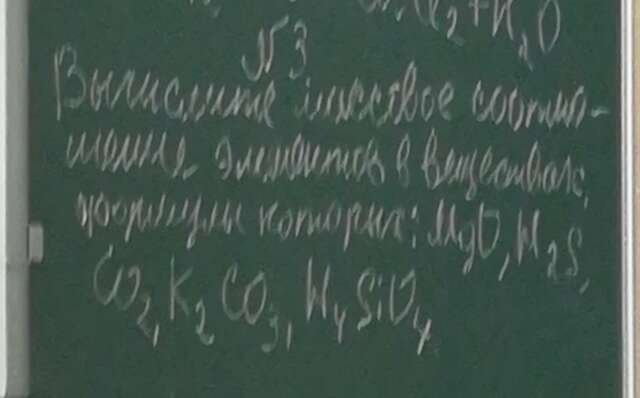 +H₂O
№3
Вычислите массовое соотно-
шение элементов в веществах,
формулы которых: MgO, H₂S,
CO₂, K₂CO₃, H₄SiO₄